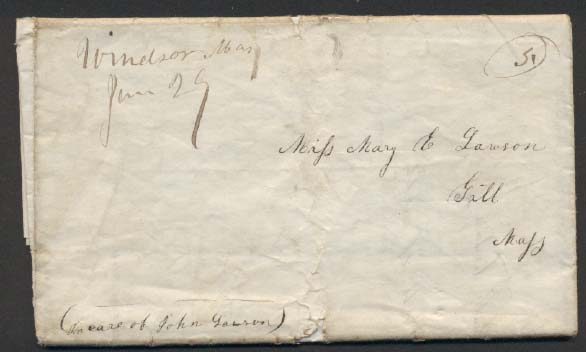 Windsor Mas
Jun 29
5
Miss Mary E Lawson
Gill
Mass
(In care of John Lawson)